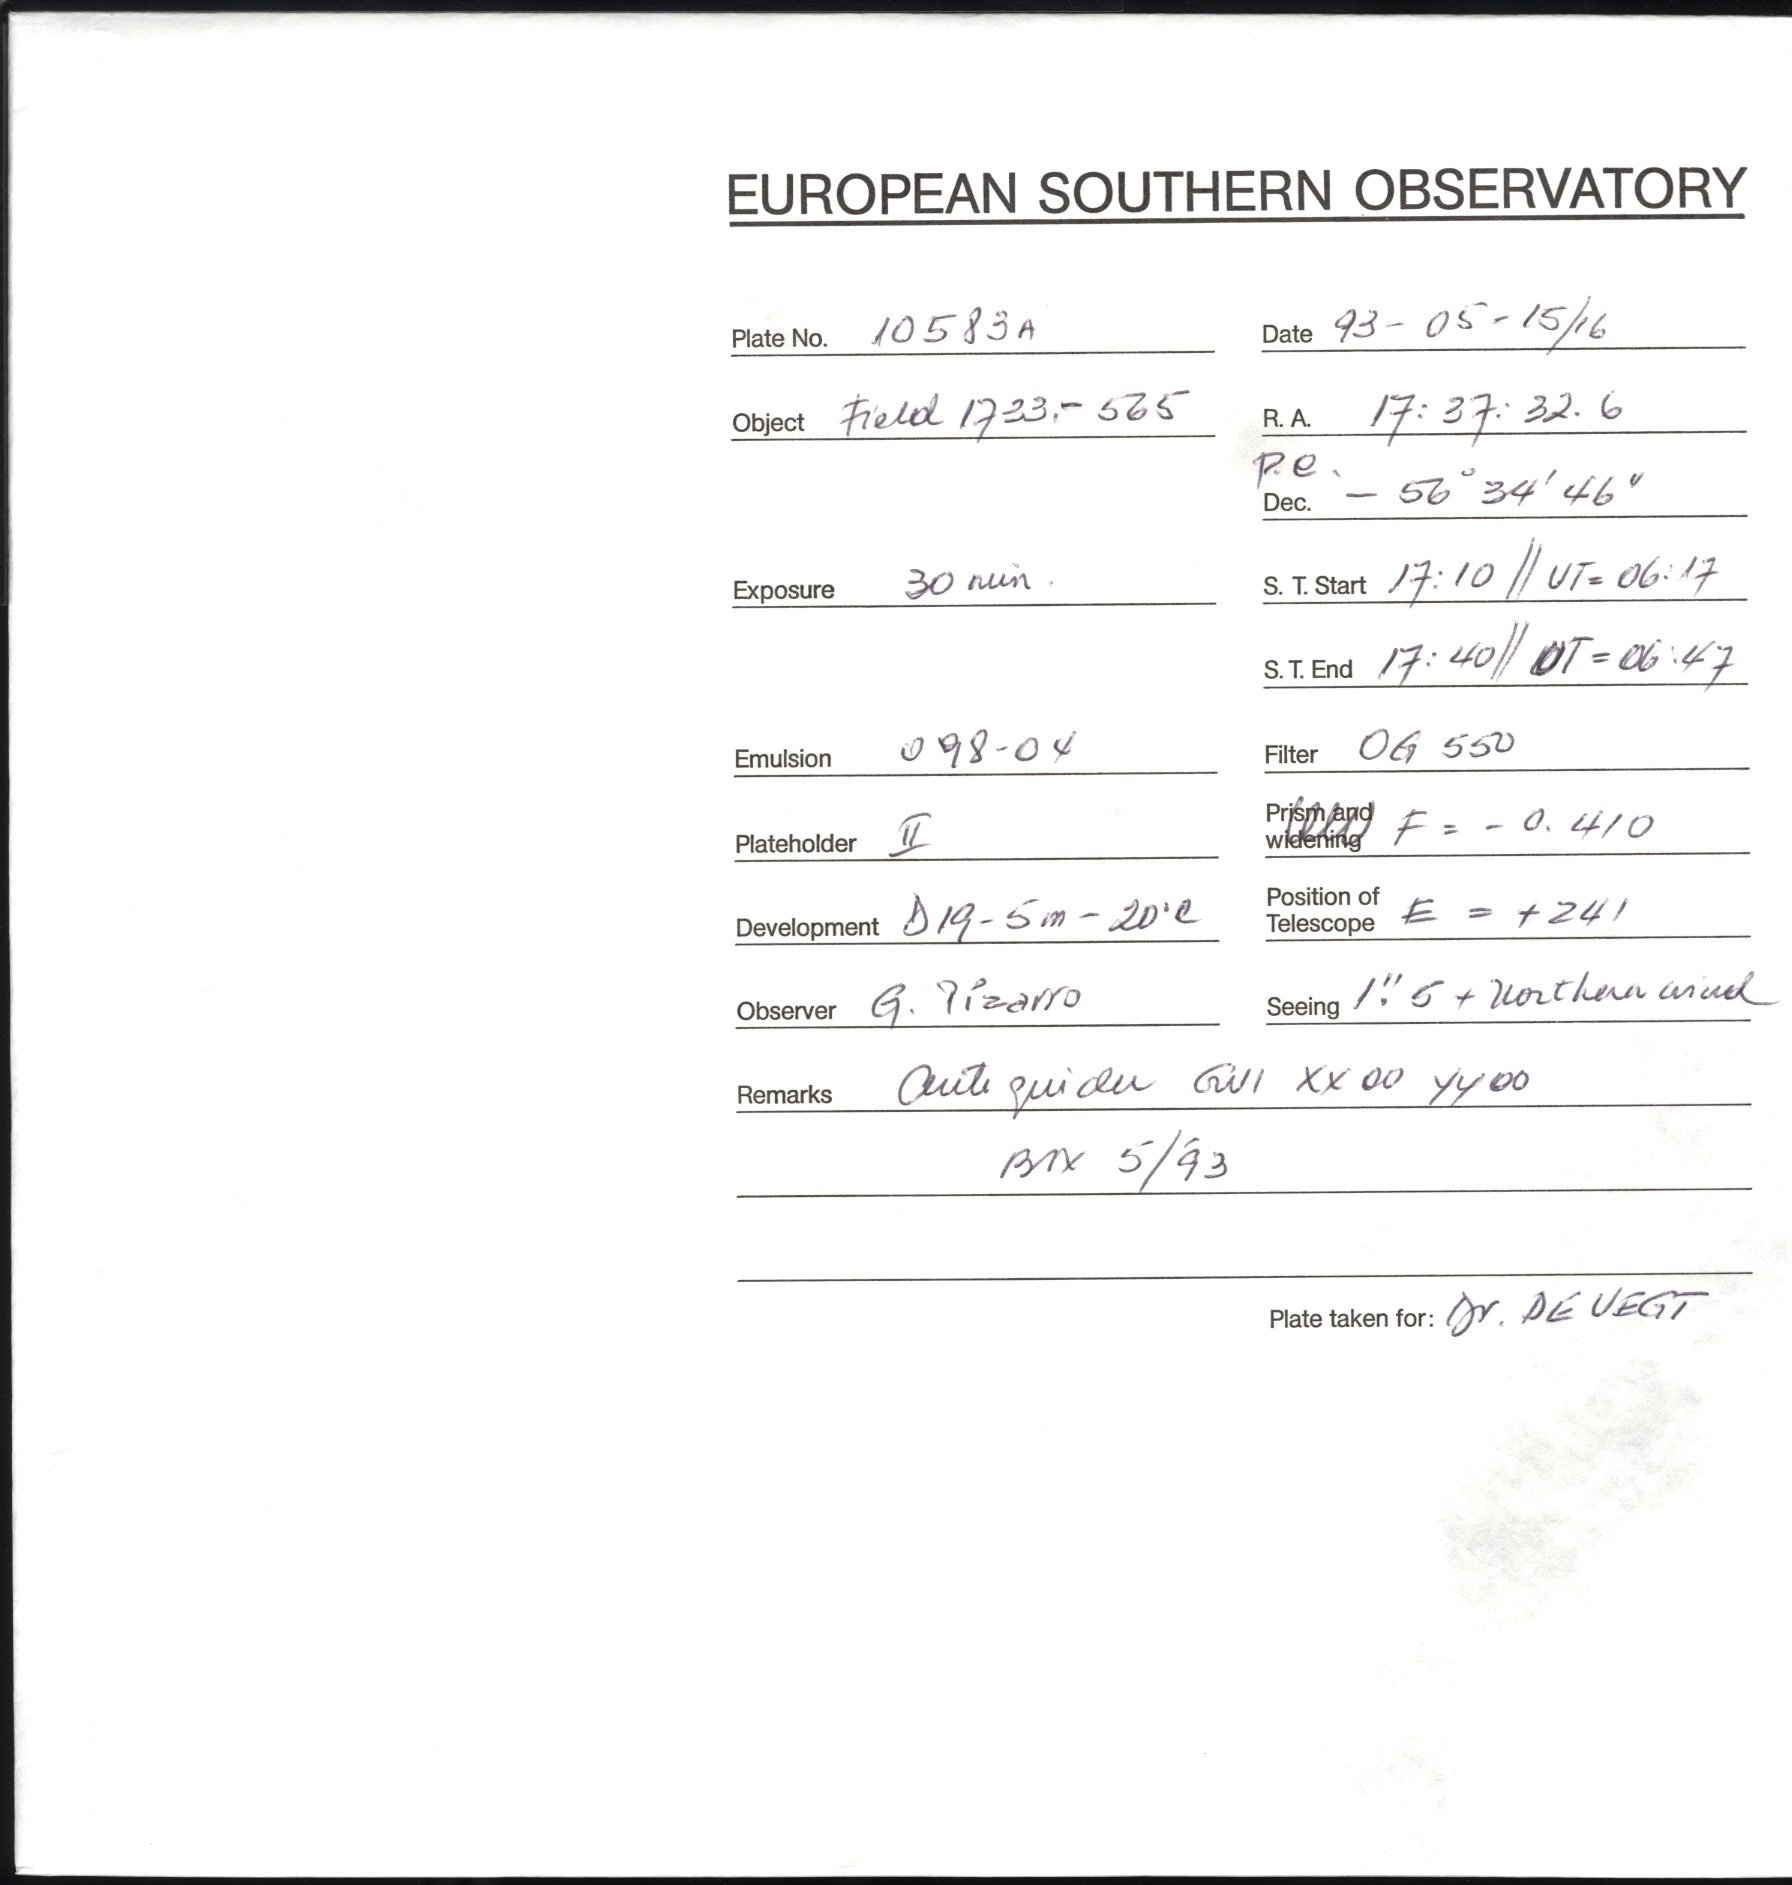 EUROPEAN SOUTHERN OBSERVATORY
Plate No. 10583A Date 93-05-15/16
Object Field 1733.-565 R. A. 17:37:32.6
p.e.
Dec. - 56° 34' 46"
Exposure 30 min. S. T. Start 17:10 // UT= 06:17
S. T. End 17:40 // UT = 06:47
Emulsion 098-04 Filter OG 550
Plateholder II Prism and widening F = - 0.410
Development D19-5m-20°C Position of Telescope E = +241
Observer G. Pizarro Seeing 1".5 + Northern wind
Remarks Auto guider XX00 YY00
BOX 5/93
Plate taken for: Dr. DE VEGT